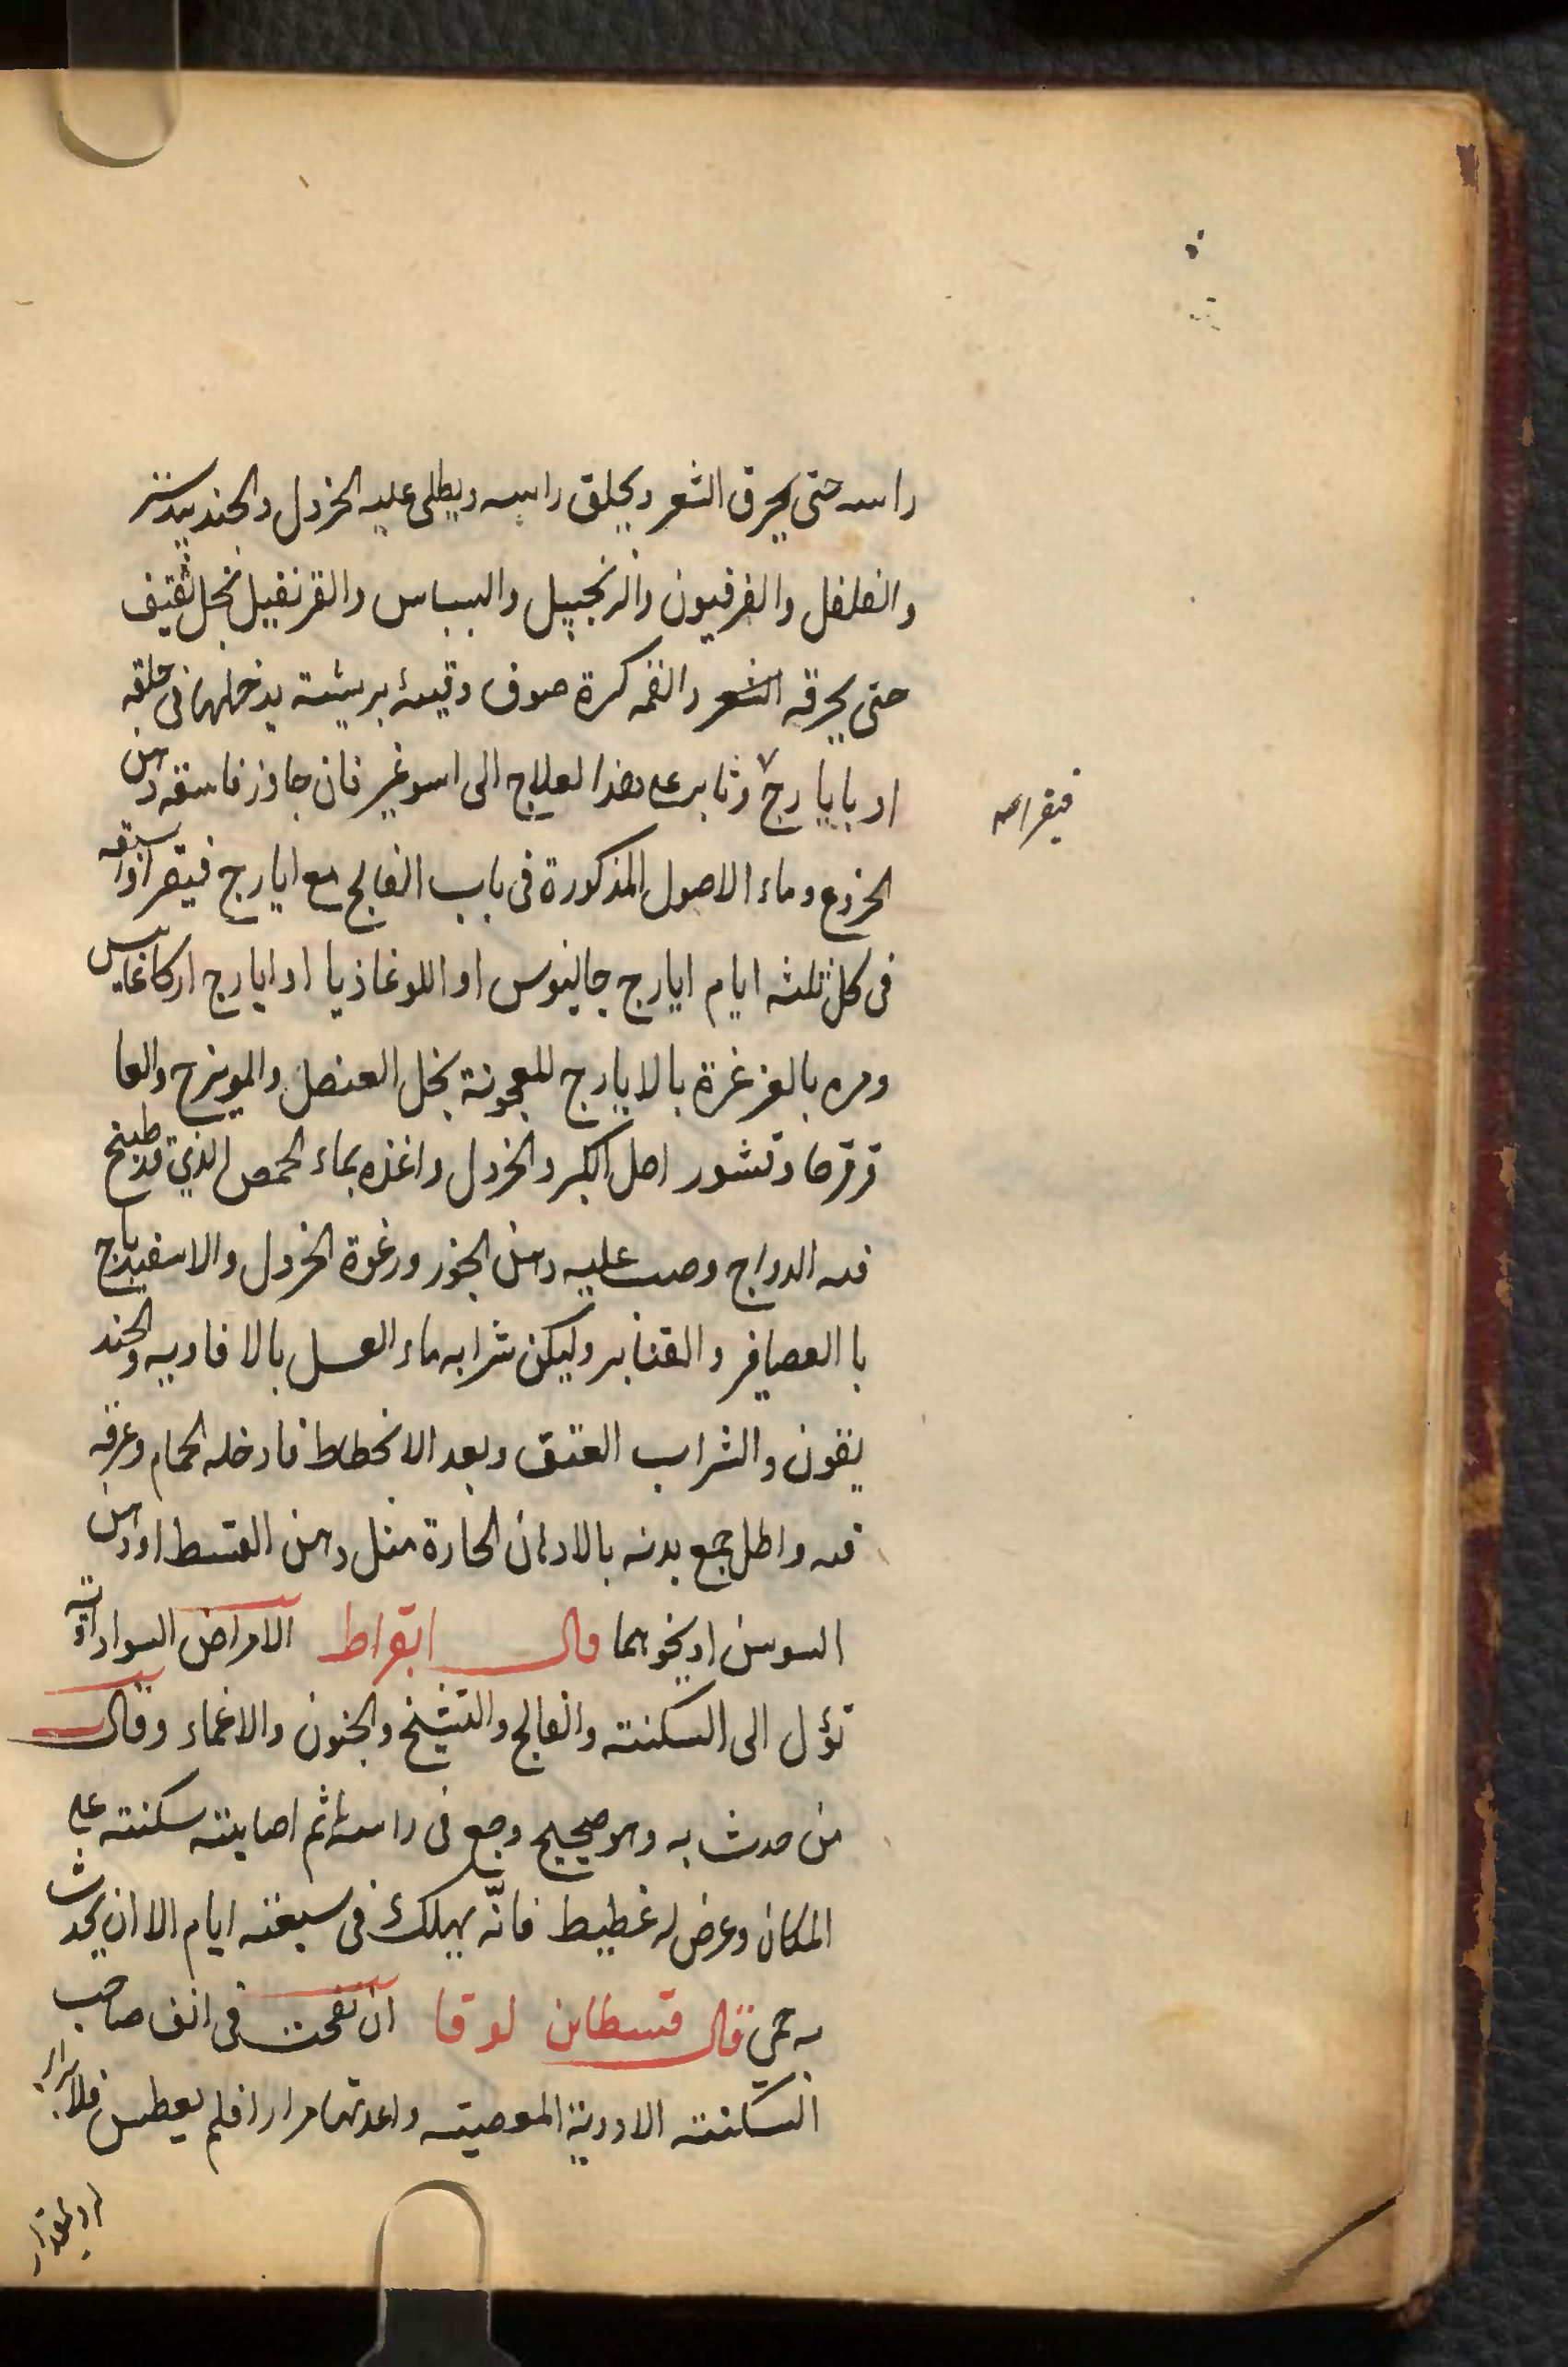 راسه حتى يحرق الشعر ويحلق راسه ويطلى عليه الخردل والجندبيدستر
والفلفل والفرفيون والزنجبيل والبسباس والقرنفيل بخل ثقيف
حتى يحرقه الشعر والقمه كرة صوف وقيئه بريشة يدخلها فى حلقه
او بايارج وثابر على هذا لعلاج الى اسوغير فان جاوز فاسقه دهن
فيقرا صه
الخروع وماء الاصول المذكورة فى باب الفالج مع ايارج فيقرا واسقه
فى كل ثلثه ايام ايارج جالينوس او اللوغاذيا او ايارج اركاغانيس
ومره بالغرغرة بالايارج المعجونة بخل العنصل والمويزج والعا
قرقرحا وقشور اصل الكبر والخردل واغذه بماء الحمص الذي قد طبخ
فيه الدراج وصب عليه دهن الجوز ورغوة الخردل والاسفيدباج
با العصافر والقنابر وليكن شرابه ماء العسل بالافاويه والخند
يقون والشراب العتيق وبعد الانحطاط فادخله الحمام وعرقه
فيه واطل جميع بدنه بالادهان الحارة مثل دهن القسط او دهن
السوسن او نحوهما قال ابقراط الامراض السوداوية
تؤل الى السكتته والفالج والتشنج والجنون والاغماء وقال
من حدث به وهو صحيح وجع فى راسه ثم اصابته سكتته على
المكان وعرض له غطيط فانّه يهلك فى سبعته ايام الا ان يحدث
به حمى قال قسطا بن لوقا ان نفخت فى انف صاحب
السكتته الادوية المعطسته واعدتها مرارا فلم يعطس فلا برا